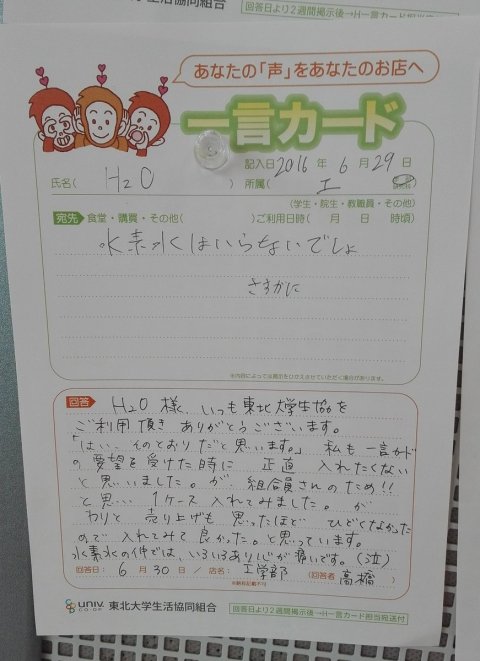 回答日より2週間掲示後→H一言カード担当
あなたの「声」をあなたのお店へ
一言カード
記入日 2016 年 6 月 29 日
氏名( H2O ) 所属( 工 )
(学生・院生・教職員・その他)
宛先 食堂・購買・その他( )ご利用日時( 月 日 時頃)
水素水はいらないでしょ
さすがに
※内容によって※掲示をひかえさせていただく場合があります。
回答 H2O様、いつも東北大学生協を
ご利用頂きありがとうございます。
「はい、そのとおりだと思います。」私も一言カード
の要望を受けた時に 正直 入れたくない
と思いました。が 組合員さんのため!!
と思い 1ケース入れてみました。が
わりと 売り上げも 思ったほど ひどくなかった
ので 入れてみて良かった。と思っています。
水素水の件では、いろいろあり心が痛いです。(泣)
回答日: 6 月 30 日 / 店名: 工学部 (回答者 高橋 )
univ. CO-OP 東北大学生活協同組合
回答日より2週間掲示後→H一言カード担当宛送付